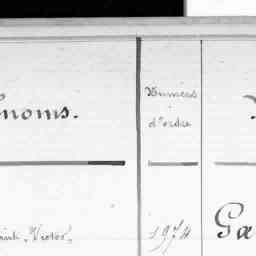 noms.
Numéros
d'ordre
Victor,
1974
Gæ